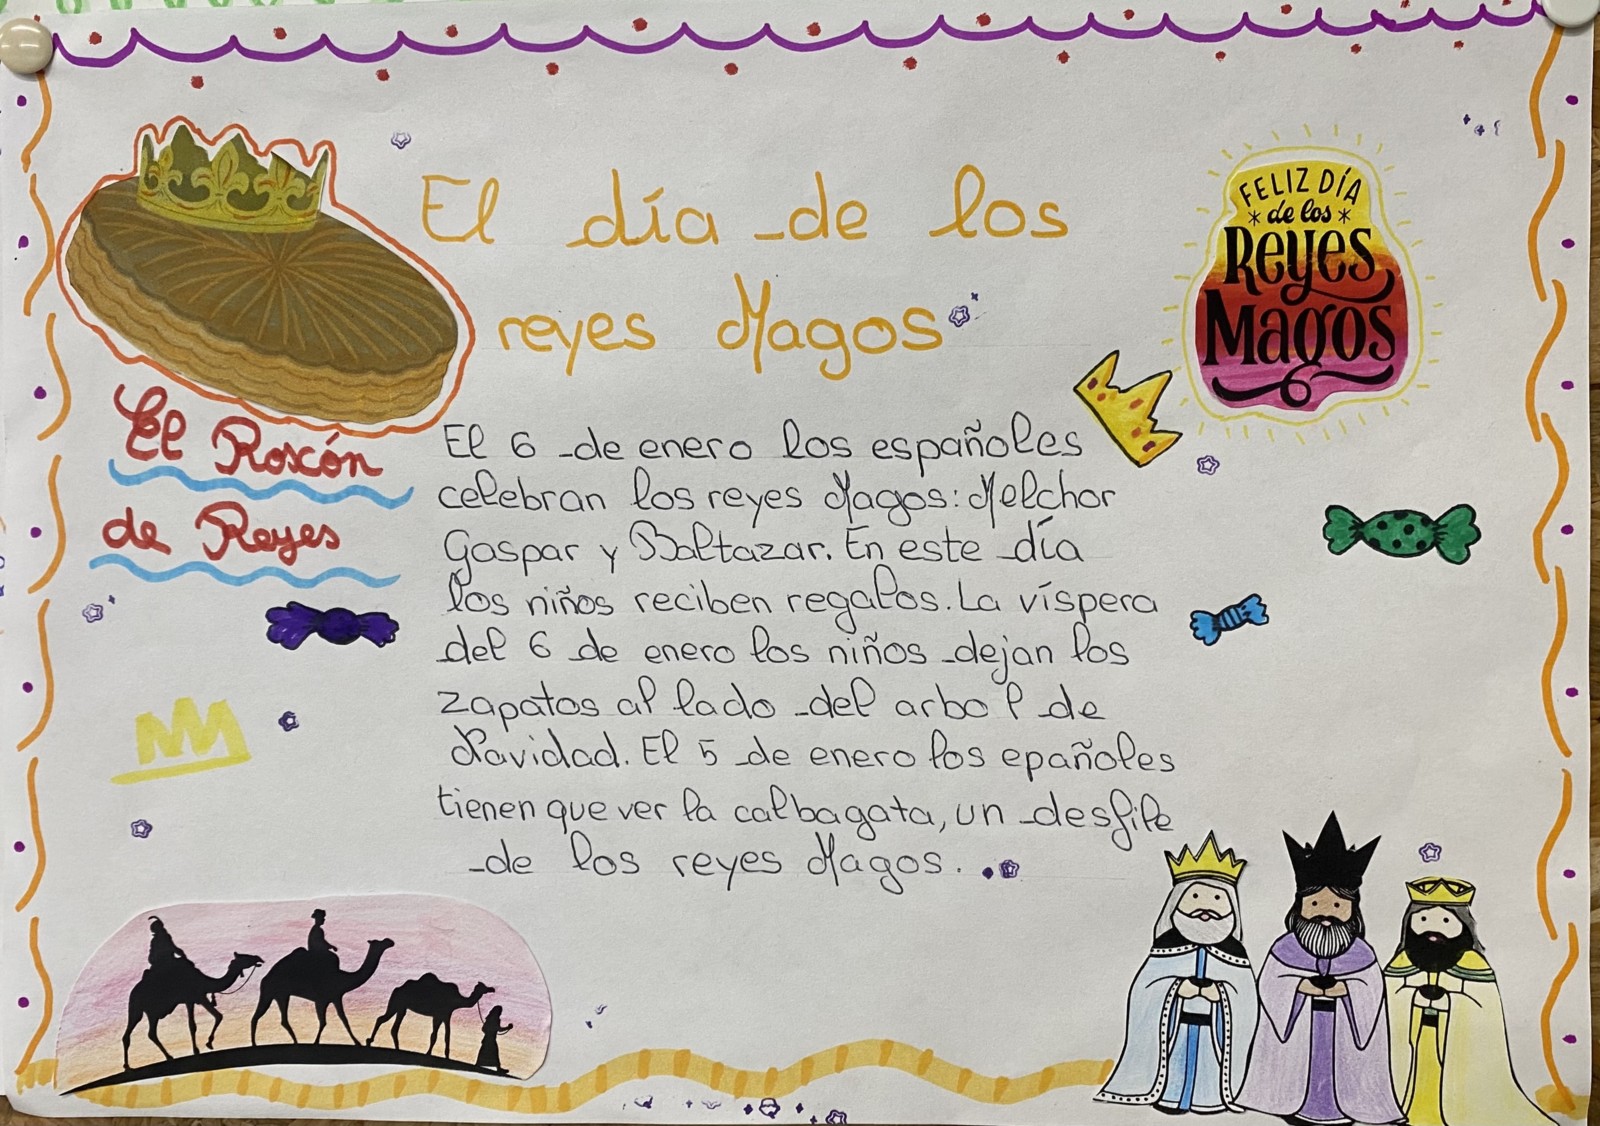 El día de los
reyes Magos
FELIZ DÍA
de los
Reyes
Magos
El Roscón
de Reyes
El 6 de enero los españoles
celebran los reyes Magos: Melchor
Gaspar y Baltazar. En este día
los niños reciben regalos. La víspera
del 6 de enero los niños dejan los
zapatos al lado del arbol de
Navidad. El 5 de enero los epañoles
tienen que ver la calbagata, un desfile
de los reyes Magos.